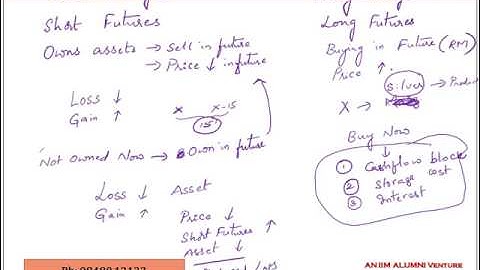 Short Futures
Owns assets → Sell in future
→ Price ↓ in future
Loss ↓
Gain ↑
X X-15
15
Not Owned Now → Own in future
Loss ↓ Asset
Gain ↑ Price ↓
Short Futures ↑
Asset ↓
Long Futures
Buying in Future (RM)
Price ↑.
Silver → Product
X →
Buy Now
↓
1 Cashflow block
2 Storage cost
3 Interest
AN IIM ALUMNI VENTURE